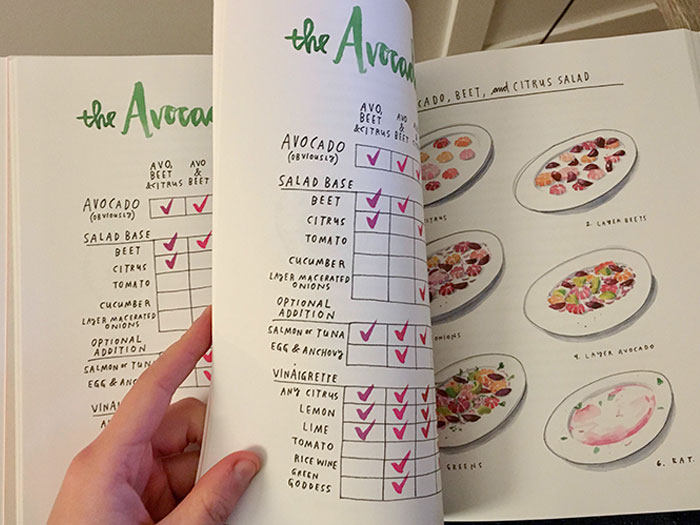 the Avoca
AVO,
BEET
&CITRUS
AVO
&
BEET
AVOCADO
(OBVIOUSLY)
SALAD BASE
BEET
CITRUS
TOMATO
CUCUMBER
LAYER MACERATED
ONIONS
OPTIONAL
ADDITION
SALMON OR TUNA
EGG & ANCHO
VINAI
ANY CITRUS
LEMON
LIME
the Avocad
AVO,
BEET
&CITRUS
AVO
&
BEET
AVOCADO
(OBVIOUSLY)
SALAD BASE
BEET
CITRUS
TOMATO
CUCUMBER
LAYER MACERATED
ONIONS
OPTIONAL
ADDITION
SALMON OR TUNA
EGG & ANCHOVY
VINAIGRETTE
ANY CITRUS
LEMON
LIME
TOMATO
RICE WINE
GREEN
GODDESS
CADO, BEET, and CITRUS SALAD
CITRUS
2. LAYER BEETS
ONIONS
4. LAYER AVOCADO
GREENS
6. EAT.